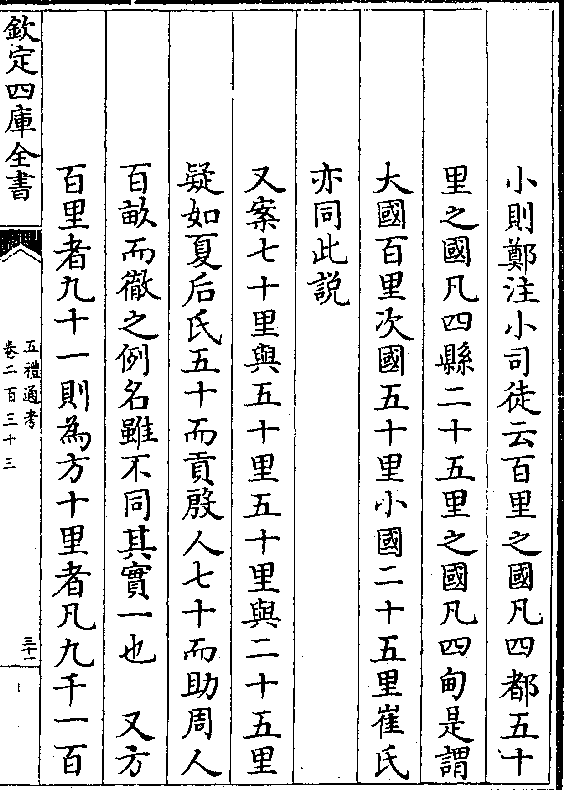 小則鄭注小司徒云百里之國凡四都五十
里之國凡四縣二十五里之國凡四甸是謂
大國百里次國五十里小國二十五里崔氏
亦同此説
又案七十里與五十里五十里與二十五里
疑如夏后氏五十而貢殷人七十而助周人
百畝而徹之例名雖不同其實一也　又方
百里者九十一則為方十里者凡九千一百
欽定四庫全書
五禮通考
卷二百三十三
三十一